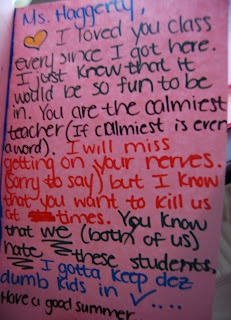 Ms. Haggerty,
I loved you class
every since I got here.
I just knew that it
would be so fun to be
in. You are the calmiest
teacher (If calmiest is even
a word). I will miss
getting on your nerves.
(Sorry to say) but I know
that you want to kill us
at times. You know
that we (both of us)
hate these students.
I gotta keep dez
dumb kids in ✓....
Have a good summer...